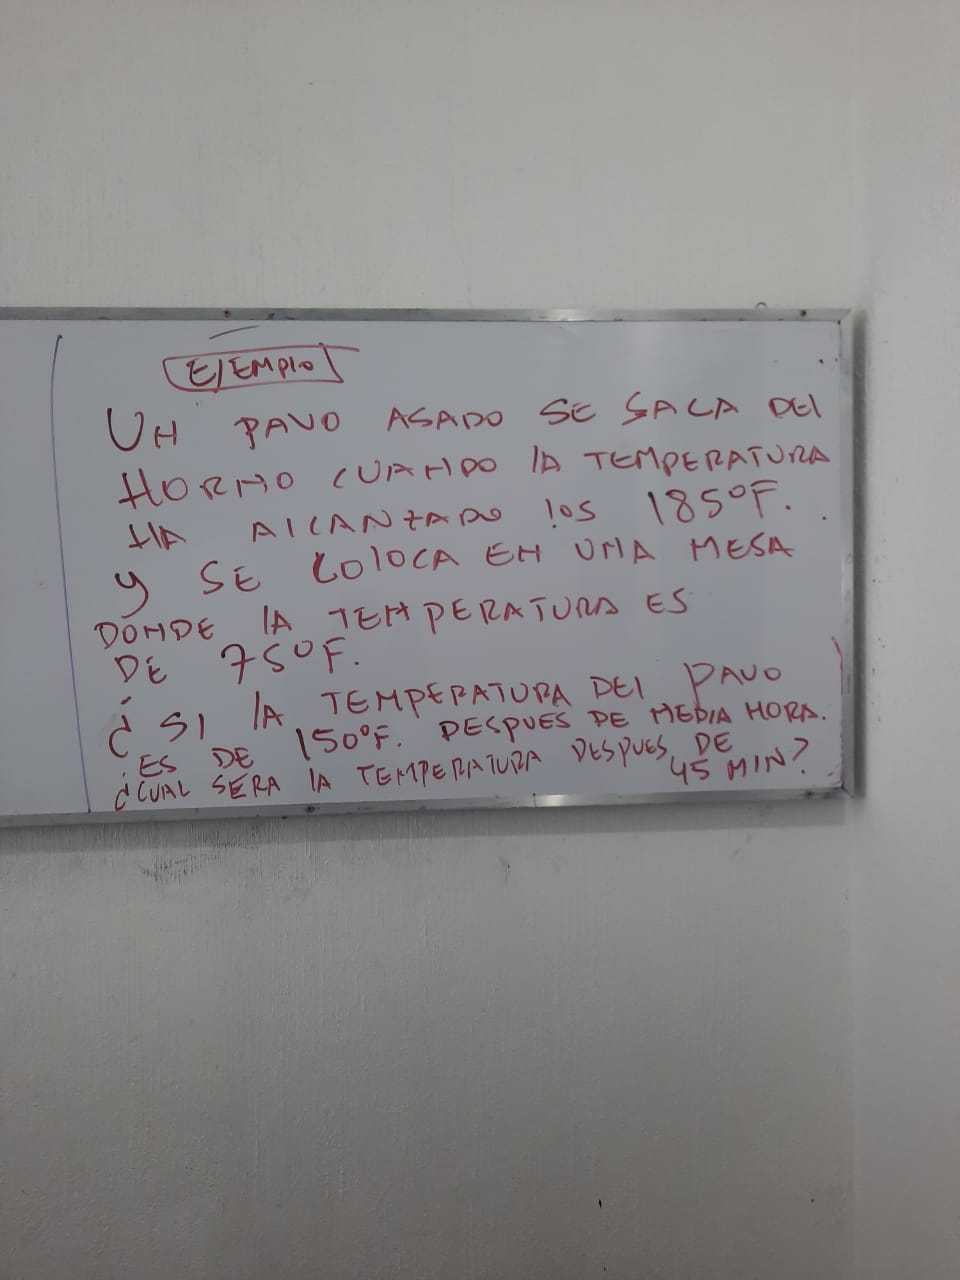 EJEMPLO
UN PAVO ASADO SE SACA DEL
HORNO CUANDO LA TEMPERATURA
HA ALCANZADO LOS 185°F.
Y SE COLOCA EN UNA MESA
DONDE LA TEMPERATURA ES
DE 75°F.
¿ SI LA TEMPERATURA DEL PAVO
ES DE 150°F. DESPUÉS DE MEDIA HORA.
¿CUAL SERA LA TEMPERATURA DESPUES DE
45 MIN?